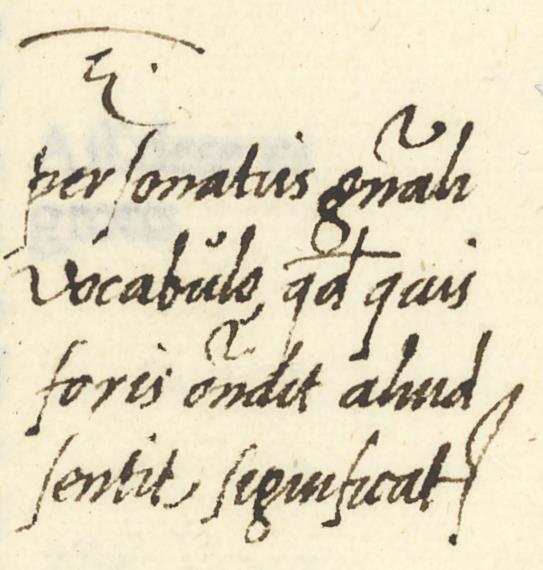 personatus gn̄ali
Vocabulo, qd̄ quis
foris on̄dit aliud
sentit significat